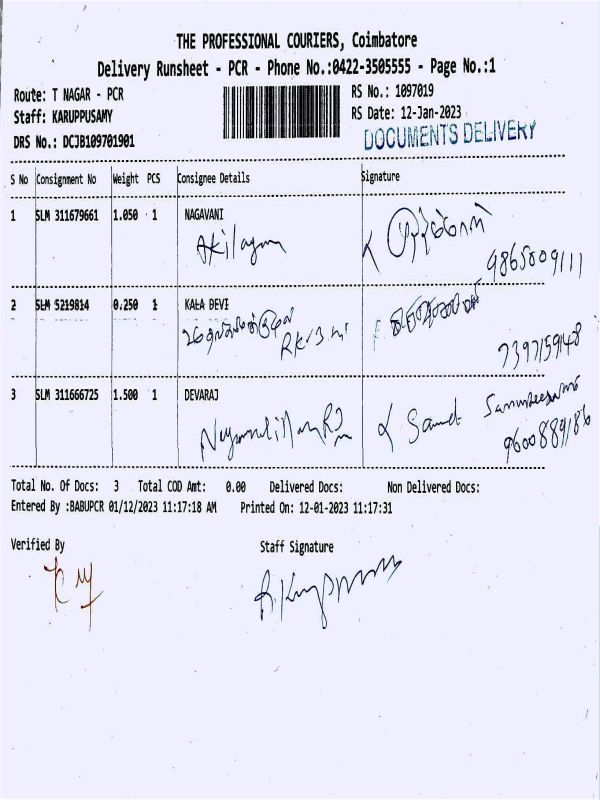 THE PROFESSIONAL COURIERS, Coimbatore
Delivery Runsheet - PCR - Phone No.:0422-3505555 - Page No.:1
Route: T NAGAR - PCR RS No.: 1097019
Staff: KARUPPUSAMY RS Date: 12-Jan-2023
DRS No.: DCJB109701901 DOCUMENTS DELIVERY
S No Consignment No Weight PCS Consignee Details Signature
1 SLM 311679661 1.050 1 NAGAVANI
Akilagam
9865809111
2 SLM 5219814 0.250 1 KALA DEVI
7397159148
3 SLM 311666725 1.500 1 DEVARAJ
9600889186
Total No. Of Docs: 3 Total COD Amt: 0.00 Delivered Docs: Non Delivered Docs:
Entered By :BABUPCR 01/12/2023 11:17:18 AM Printed On: 12-01-2023 11:17:31
Verified By Staff Signature